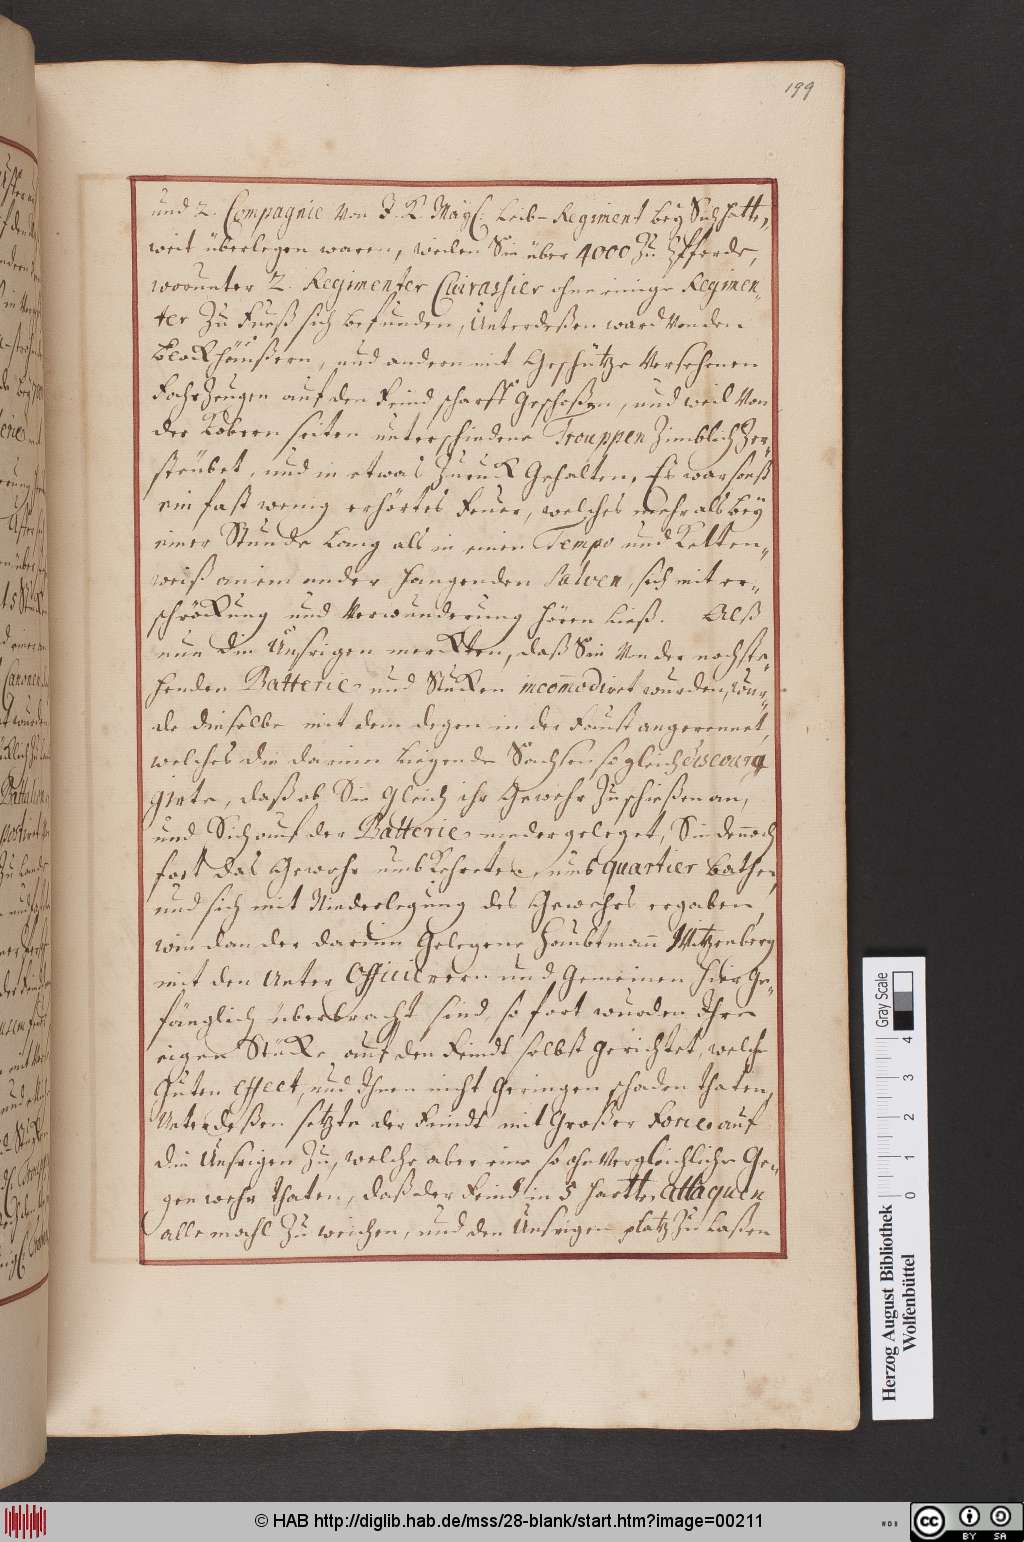 199
und 2. Compagnie von I. K. Mayſ: Leib-Regiment bey Sich hatte,
weit überlegen waren, weilen Sie über 4000 Zu Pferde,
worunter 2. Regimenter Cuirassier ohne einige Regimen-
ter Zu Fueß sich befunden, Unterdeßen ward Von den
Blockhäußern, und andern mit Geschütze Versehenen
Fahr Zeugen auf den Feind scharff Geschoßen, und weil Von
der Lobern seiten unterschiedene Trouppen Zimblich Zer-
steübet, und in etwas Zuruck Gehalten, Es war sonst
ein fast wenig erhörtes Feuer, welches mehr als bey
einer Stunde Lang als in einen Tempo und Ketten-
weiß an ein ander hangenden Salven, sich mit er-
schröckung und Verwunderung hören ließ. Alß
nun die Unsrigen merckten, daß Sie Von der nechste-
henden Batterie und Stucken incommodiret wurden, wur-
de dieselbe mit dem degen in der Faust angerennet,
welches die darinn Liegende Sachsen sogleich discourg
girte, daß ob Sie Gleich ihr Gewehr Zu schießen an,
und Sich auf der Batterie nieder geleget, Sie dennoch
fort das Gewehr umbkehreten, umb quartier bathen,
und sich mit Niederlegung des Gewehrs ergaben,
wie dan der darinn Gelegene Haubtmann Mitzenberg
mit den Unter Officirern und Gemeinen hier Ge-
fänglich überbracht sind, so fort wurden Ihre
eigene Stücke auf den Feindt selbst Gerichtet, welche
Guten effect, und Ihnen nicht Geringen schaden thaten,
Unterdeßen setzte der Feindt mit Großer Force auf
die Unsrigen Zu, welche aber eine so ohn Vergleichliche Ge-
genwehr thaten, daß der Feind in 5 harte attaquen
alle mahl Zu weichen, und den Unsrigen platz Zu Laßen
Herzog August Bibliothek
Wolfenbüttel
0 1 2 3 4
Gray Scale
© HAB http://diglib.hab.de/mss/28-blank/start.htm?image=00211
WDB
cc
BY SA